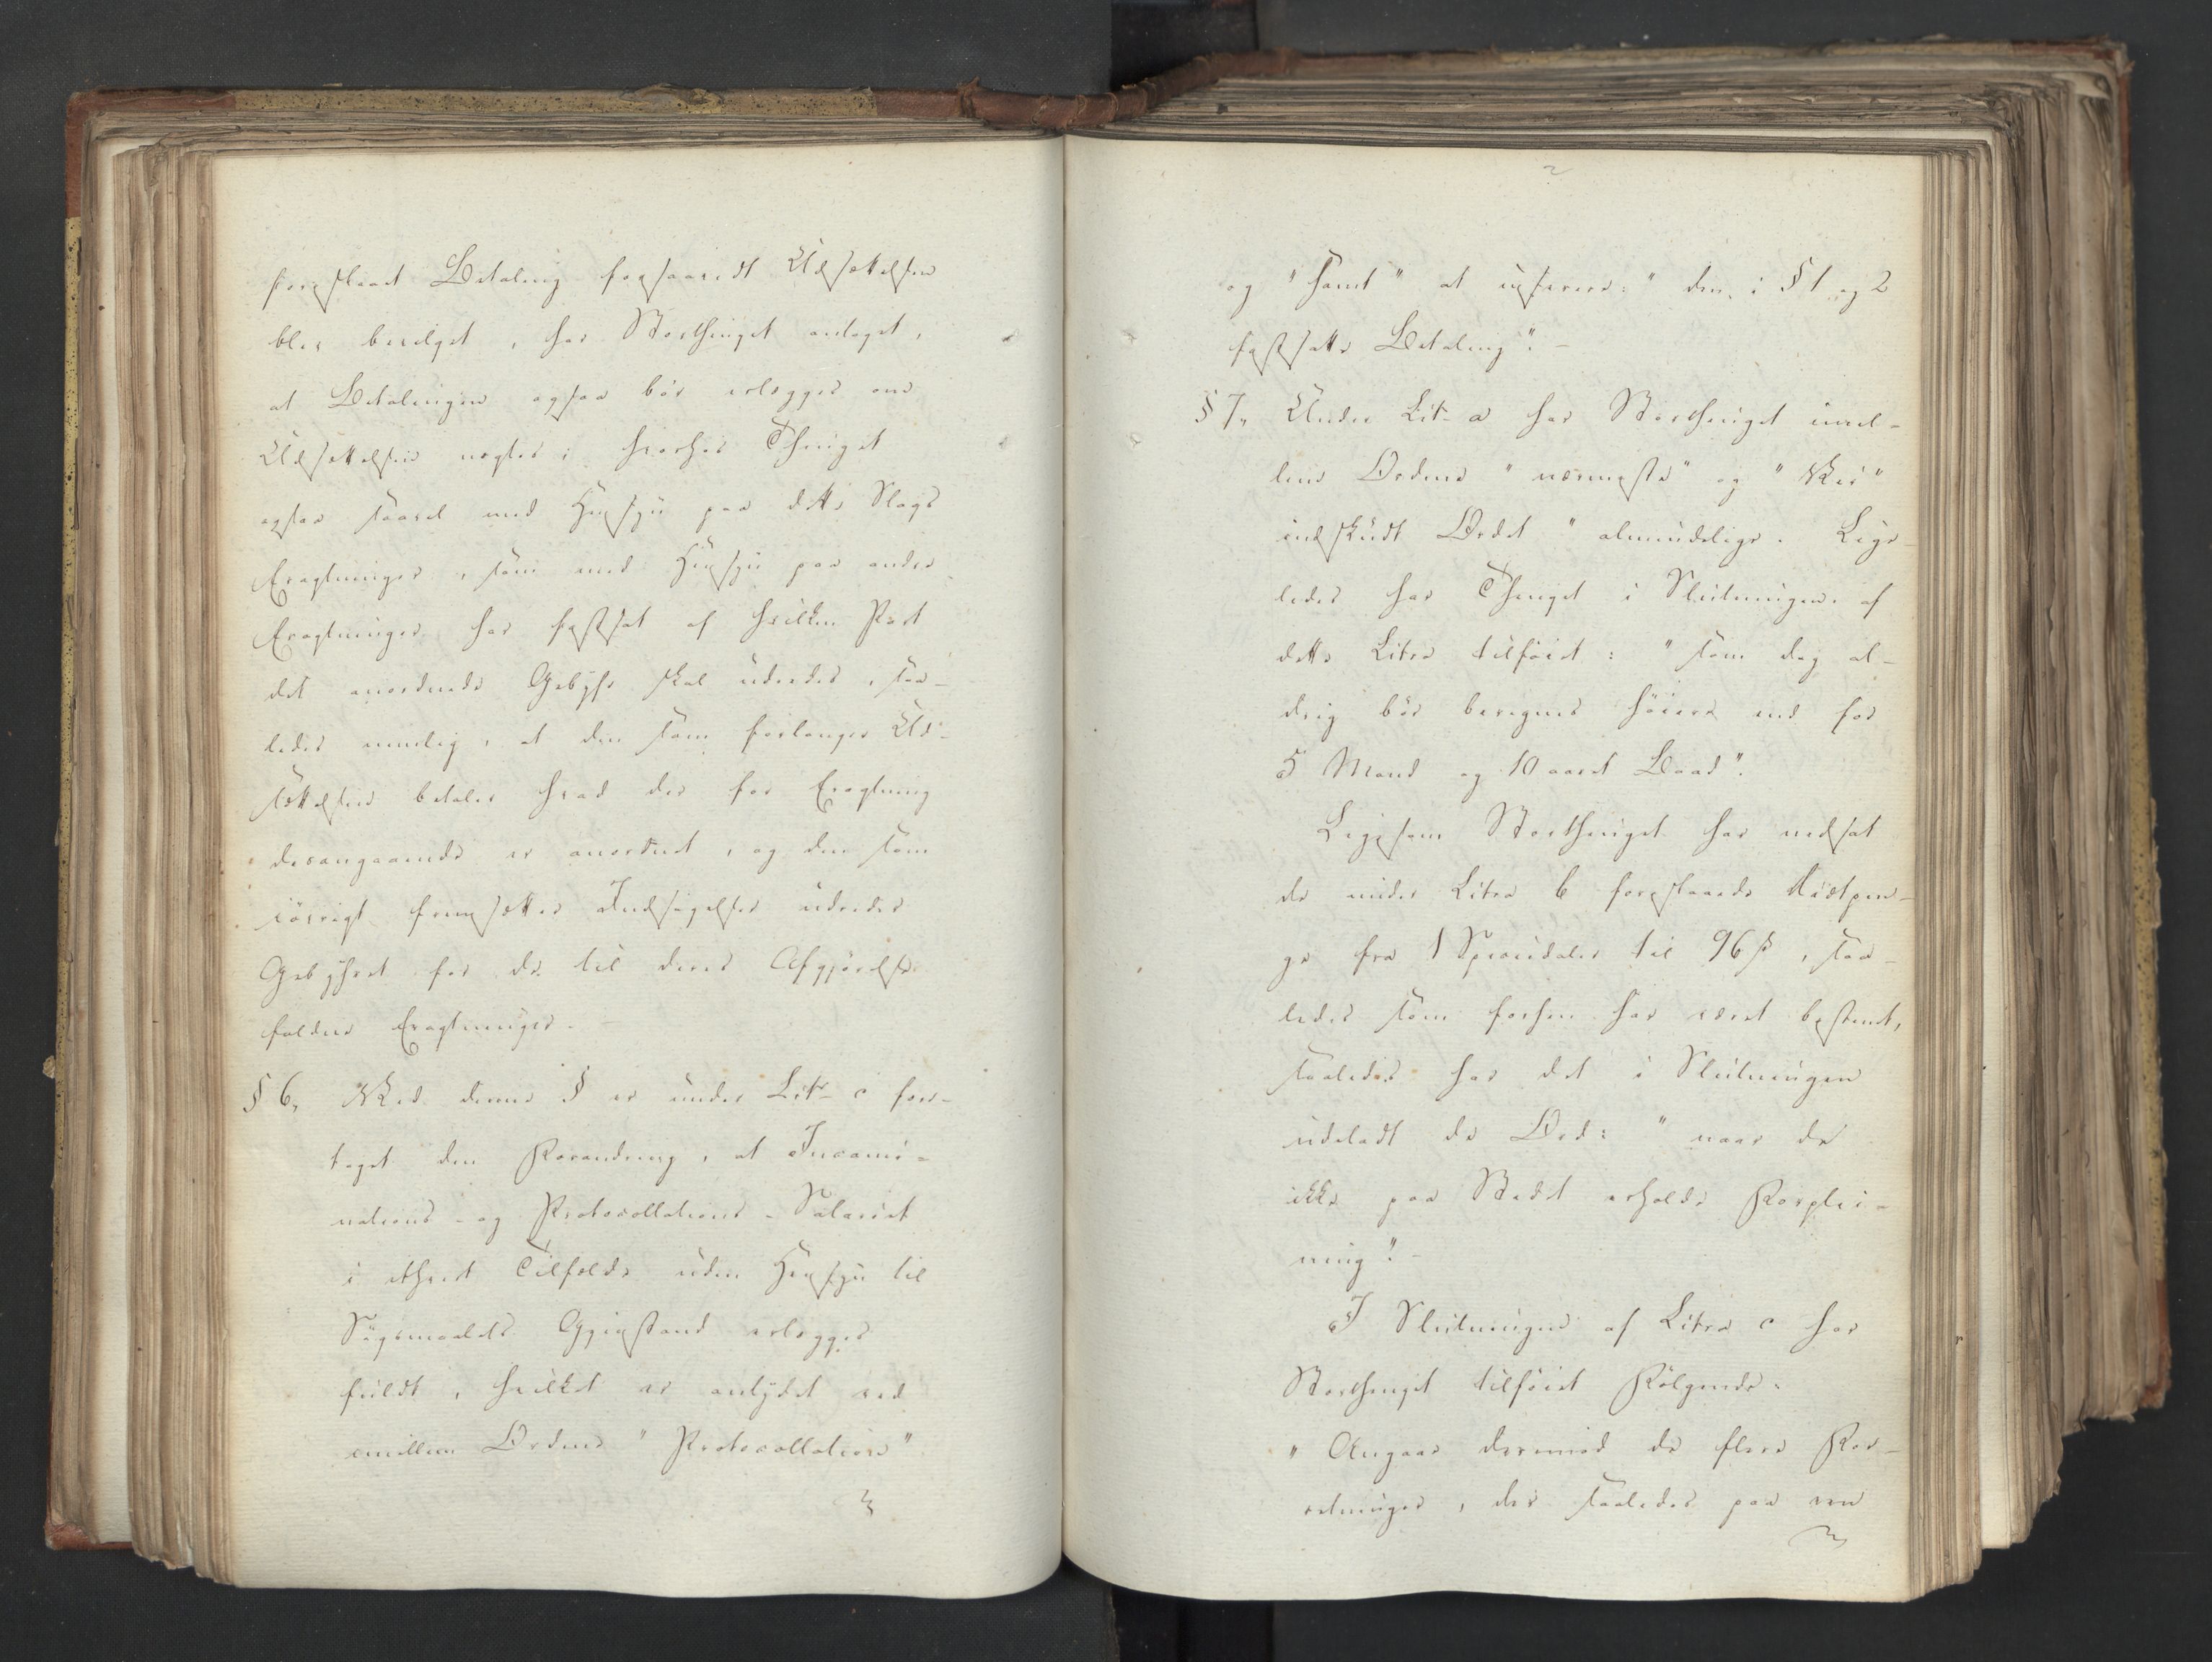 foreslaaet Betaling forsaavidt Udsættelsen
blev bevilget, har Storthinget antaget,
at Betalingen ogsaa bør erlægges om
Udsættelsen nægtes; hvorhos Thinget
ogsaa saavel med Hensyn paa dette Slags
Eragtninger, som med Hensyn paa andre
Eragtninger har fastsat af hvilken Part
det anordnede Gebyhr skal udredes, saa-
ledes nemlig, at den som forlanger Ud-
sættelsen betaler hvad der for Eragtning
desangaaende er anordnet, og den som
iøvrigt fremsætter Indsigelser udreder
Gebyhret for de til deres Afgjørelse
faldne Eragtninger.
§ 6, Ved denne § er under Litr c fore-
taget den Forandring, at Incami-
nations- og Protocollations-Salariet
i ethvert Tilfælde uden Hensyn til
Søgsmaalets Gjenstand erlægges
fuldt, hvilket er antydet ved
imellem Ordene "Protocollation"
2
og "samt" at inserere: "den i § 1 og 2
fastsatte Betaling".-
§ 7, Under Litr a har Storthinget imel-
lem Ordene "nærmeste" og "Vei"
indskudt Ordet "almindelige. Lige-
ledes har Thinget i Slutningen af
dette Litra tilføiet: "som dog al-
drig bør beregnes høiere end for
3 Mand og 10 aaret Baad".
Ligesom Storthinget har nedsat
de under Litra b foreslaaede Diætpen-
ge fra 1 Speciedaler til 96 ß, saa-
ledes som forhen har været bestemt,
saaledes har det i Slutningen
udeladt de Ord: "naar de
ikke paa Stedet erholde Forplei-
ning".-
I Slutningen af Litra c har
Storthinget tilføiet Følgende:
"Angaae derimod de flere For-
retninger, der saaledes paa een